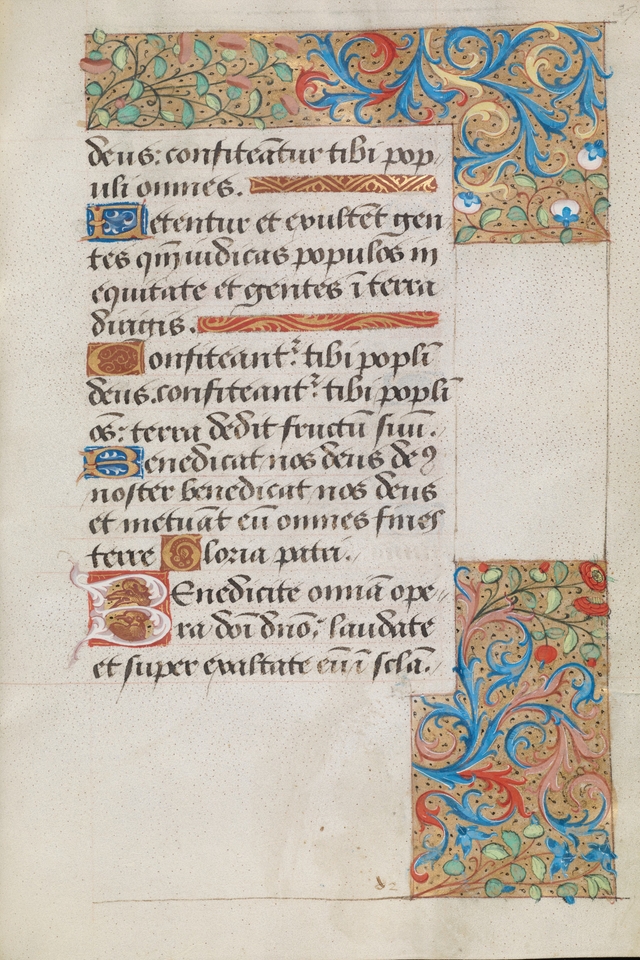 deus: confiteātur tibi pop
uli omnes.
Letentur et exultēt gen
tes qm̄ iudicas populos in
equitate et gentes ī terra
dirigis.
Confiteant᷑ tibi popl̄i
deus. confiteant᷑ tibi popl̄i
os̄: terra dedit fructū suū.
Benedicat nos deus deꝰ
noster benedicat nos deus
et metuāt eū omnes fines
terre Gloria patri.
BEnedicite omīa ope
ra dōi dn̄o: laudate
et super exaltate eū ī scl̄a.